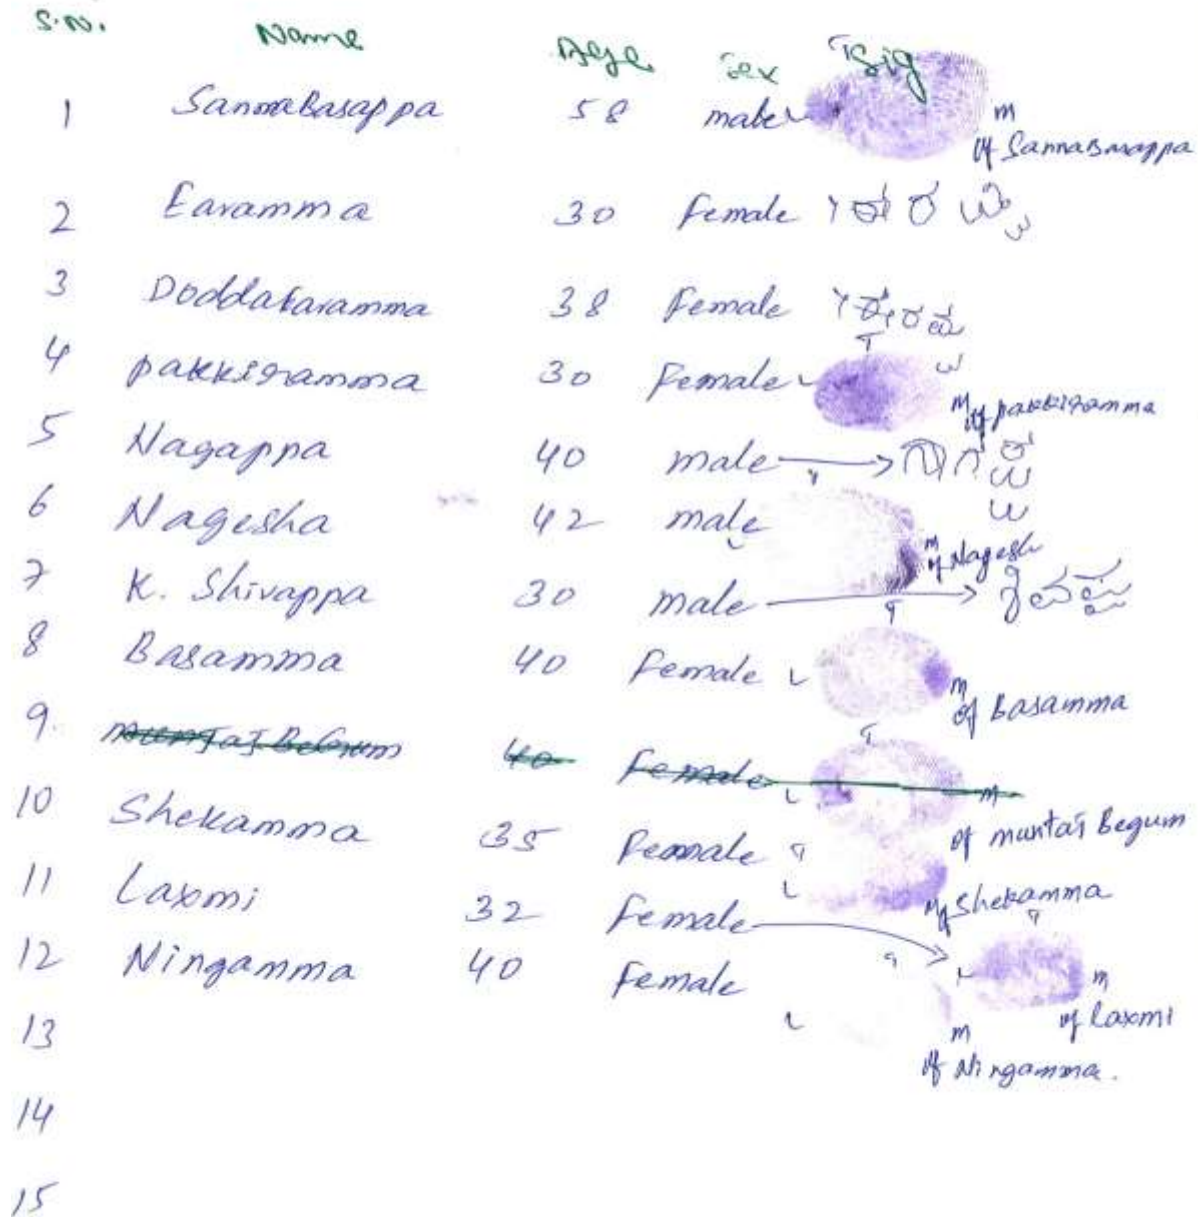 S.No. Name Age Sex Sig
1 SannaBasappa 58 male m
of Sannabasappa
2 Earamma 30 Female
3 DoddaEaramma 38 Female
4 pakkiramma 30 Female m
of pakkiramma
5 Nagappa 40 male
6 Nagesha 42 male m
of Nagesh
7 K. Shivappa 30 male
8 Basamma 40 Female L m
of Basamma
9. muntaj Begum 40 Female L m
of muntaj Begum
10 Shekamma 35 Female L m
of Shekamma
11 Laxmi 32 Female m
of laxmi
12 Ningamma 40 Female L m
of Ningamma.
13
14
15